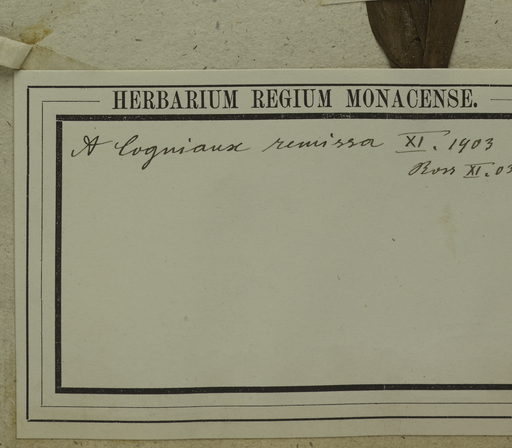 HERBARIUM REGIUM MONACENSE.
A Cogniaux remissa XI. 1903
Ross XI. 03